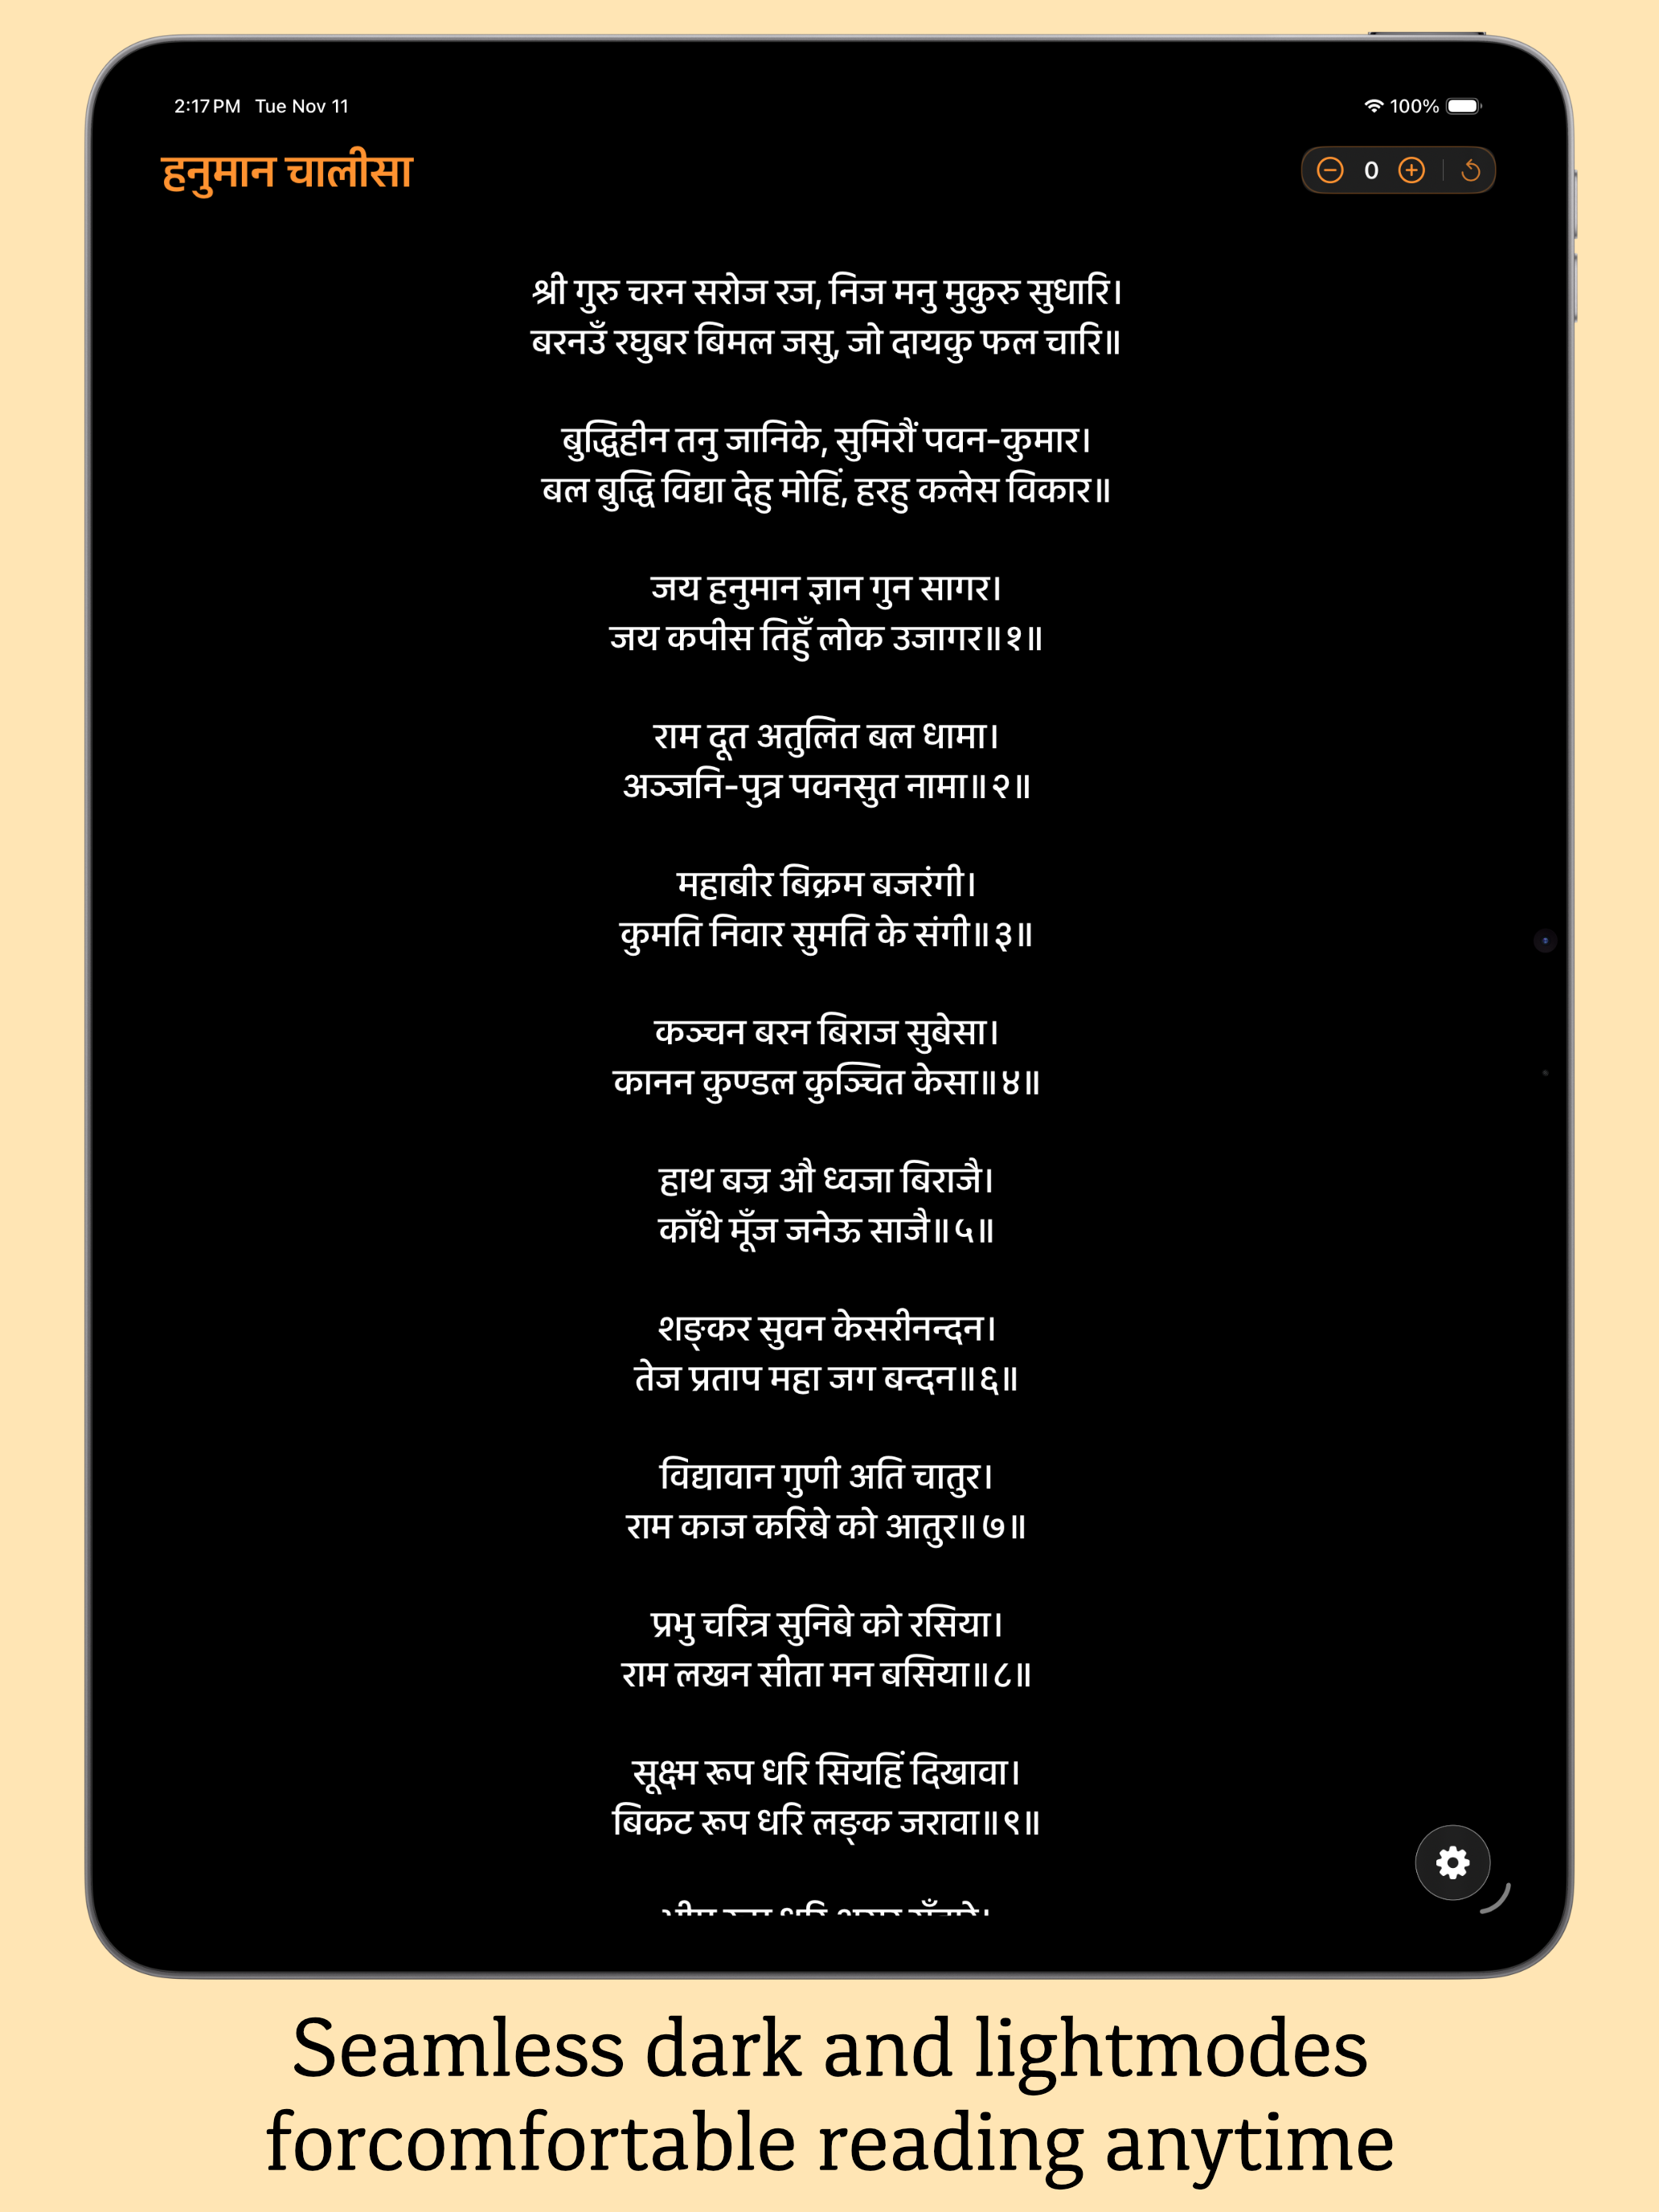 2:17 PM Tue Nov 11 100%
हनुमान चालीसा 0
श्री गुरु चरन सरोज रज, निज मनु मुकुरु सुधारि।
बरनउँ रघुबर बिमल जसु, जो दायकु फल चारि॥
बुद्धिहीन तनु जानिके, सुमिरौं पवन-कुमार।
बल बुद्धि विद्या देहु मोहिं, हरहु कलेस विकार॥
जय हनुमान ज्ञान गुन सागर।
जय कपीस तिहुँ लोक उजागर॥१॥
राम दूत अतुलित बल धामा।
अञ्जनि-पुत्र पवनसुत नामा॥२॥
महाबीर बिक्रम बजरंगी।
कुमति निवार सुमति के संगी॥३॥
कञ्चन बरन बिराज सुबेसा।
कानन कुण्डल कुञ्चित केसा॥४॥
हाथ बज्र औ ध्वजा बिराजै।
काँधे मूँज जनेऊ साजै॥५॥
शङ्कर सुवन केसरीनन्दन।
तेज प्रताप महा जग बन्दन॥६॥
विद्यावान गुणी अति चातुर।
राम काज करिबे को आतुर॥७॥
प्रभु चरित्र सुनिबे को रसिया।
राम लखन सीता मन बसिया॥८॥
सूक्ष्म रूप धरि सियहिं दिखावा।
बिकट रूप धरि लङ्क जरावा॥९॥
Seamless dark and lightmodes
forcomfortable reading anytime